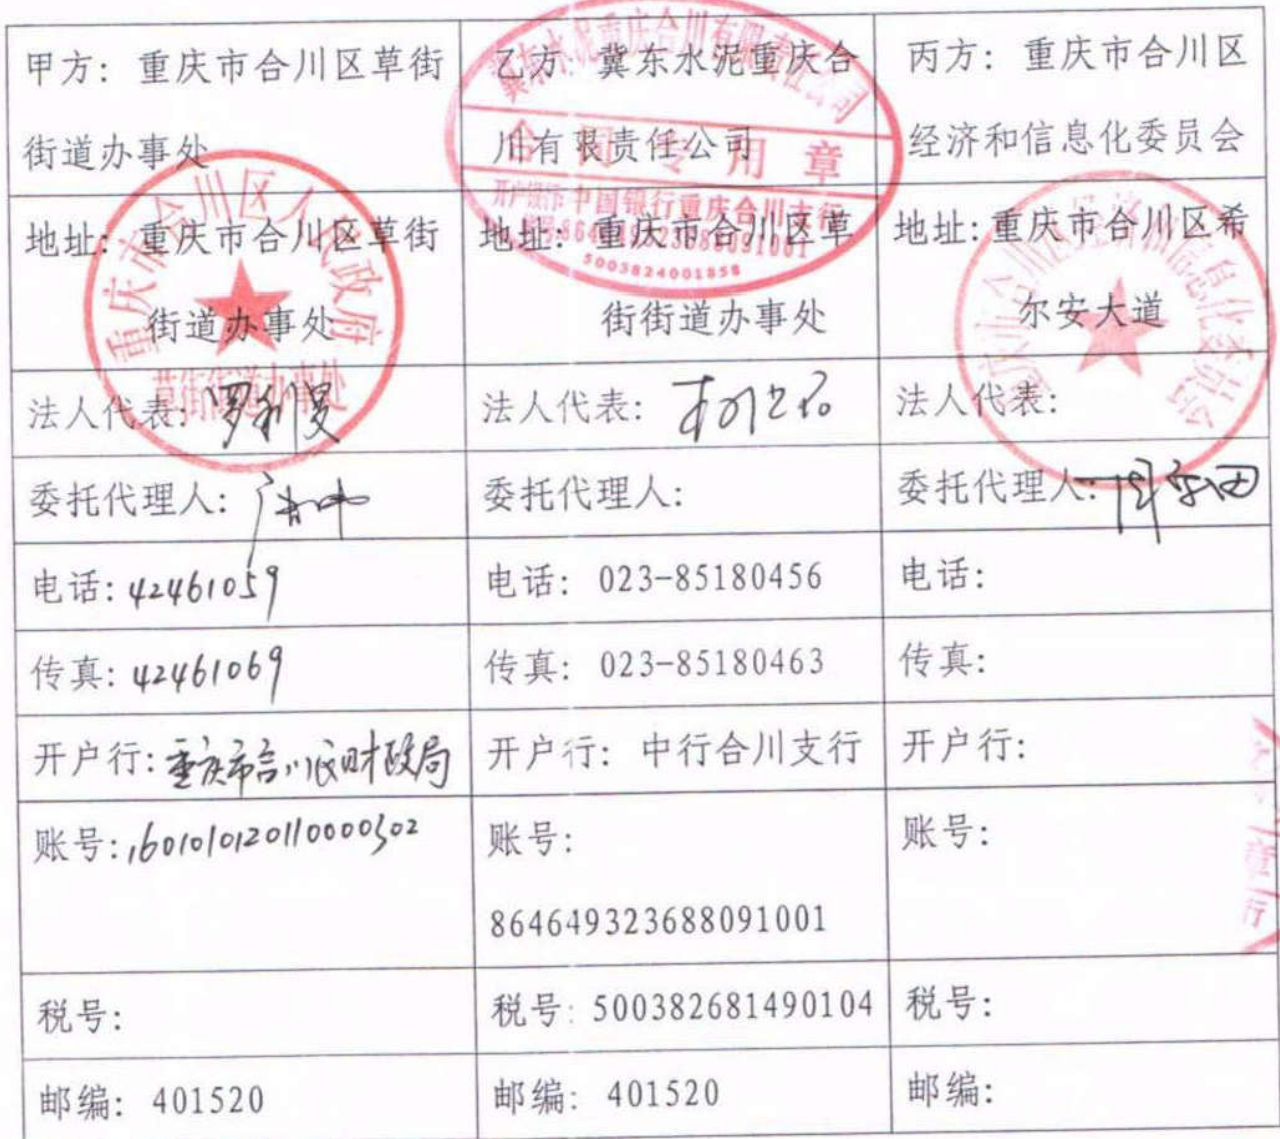 甲方：重庆市合川区草街
街道办事处
乙方：冀东水泥重庆合
川有限责任公司
丙方：重庆市合川区
经济和信息化委员会
地址：重庆市合川区草街
街道办事处
地址：重庆市合川区草
街街道办事处
地址：重庆市合川区希
尔安大道
法人代表：
法人代表：
法人代表：
委托代理人：
委托代理人：
委托代理人：
电话：42461059
电话：023-85180456
电话：
传真：42461069
传真：023-85180463
传真：
开户行：重庆市合川区财政局
开户行：中行合川支行
开户行：
账号：1601010120110000302
账号：
864649323688091001
账号：
税号：
税号：500382681490104
税号：
邮编：401520
邮编：401520
邮编：
重庆市合川区人民政府
草街街道办事处
冀东水泥重庆合川有限责任公司
合同专用章
开户银行:中国银行重庆合川支行
5003824001858
章
行